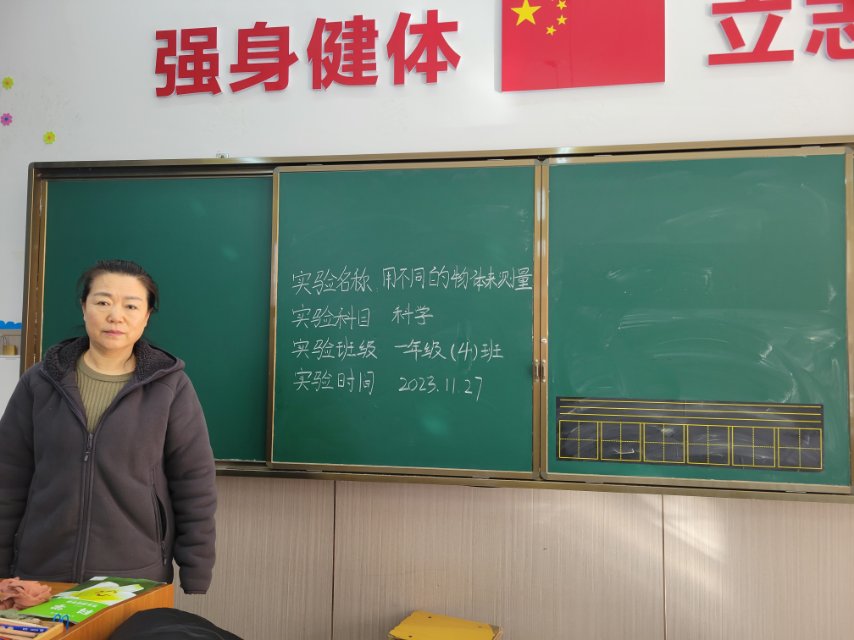 强身健体
立志
实验名称 用不同的物体来测量
实验科目 科学
实验班级 一年级(4)班
实验时间 2023.11.27
科学